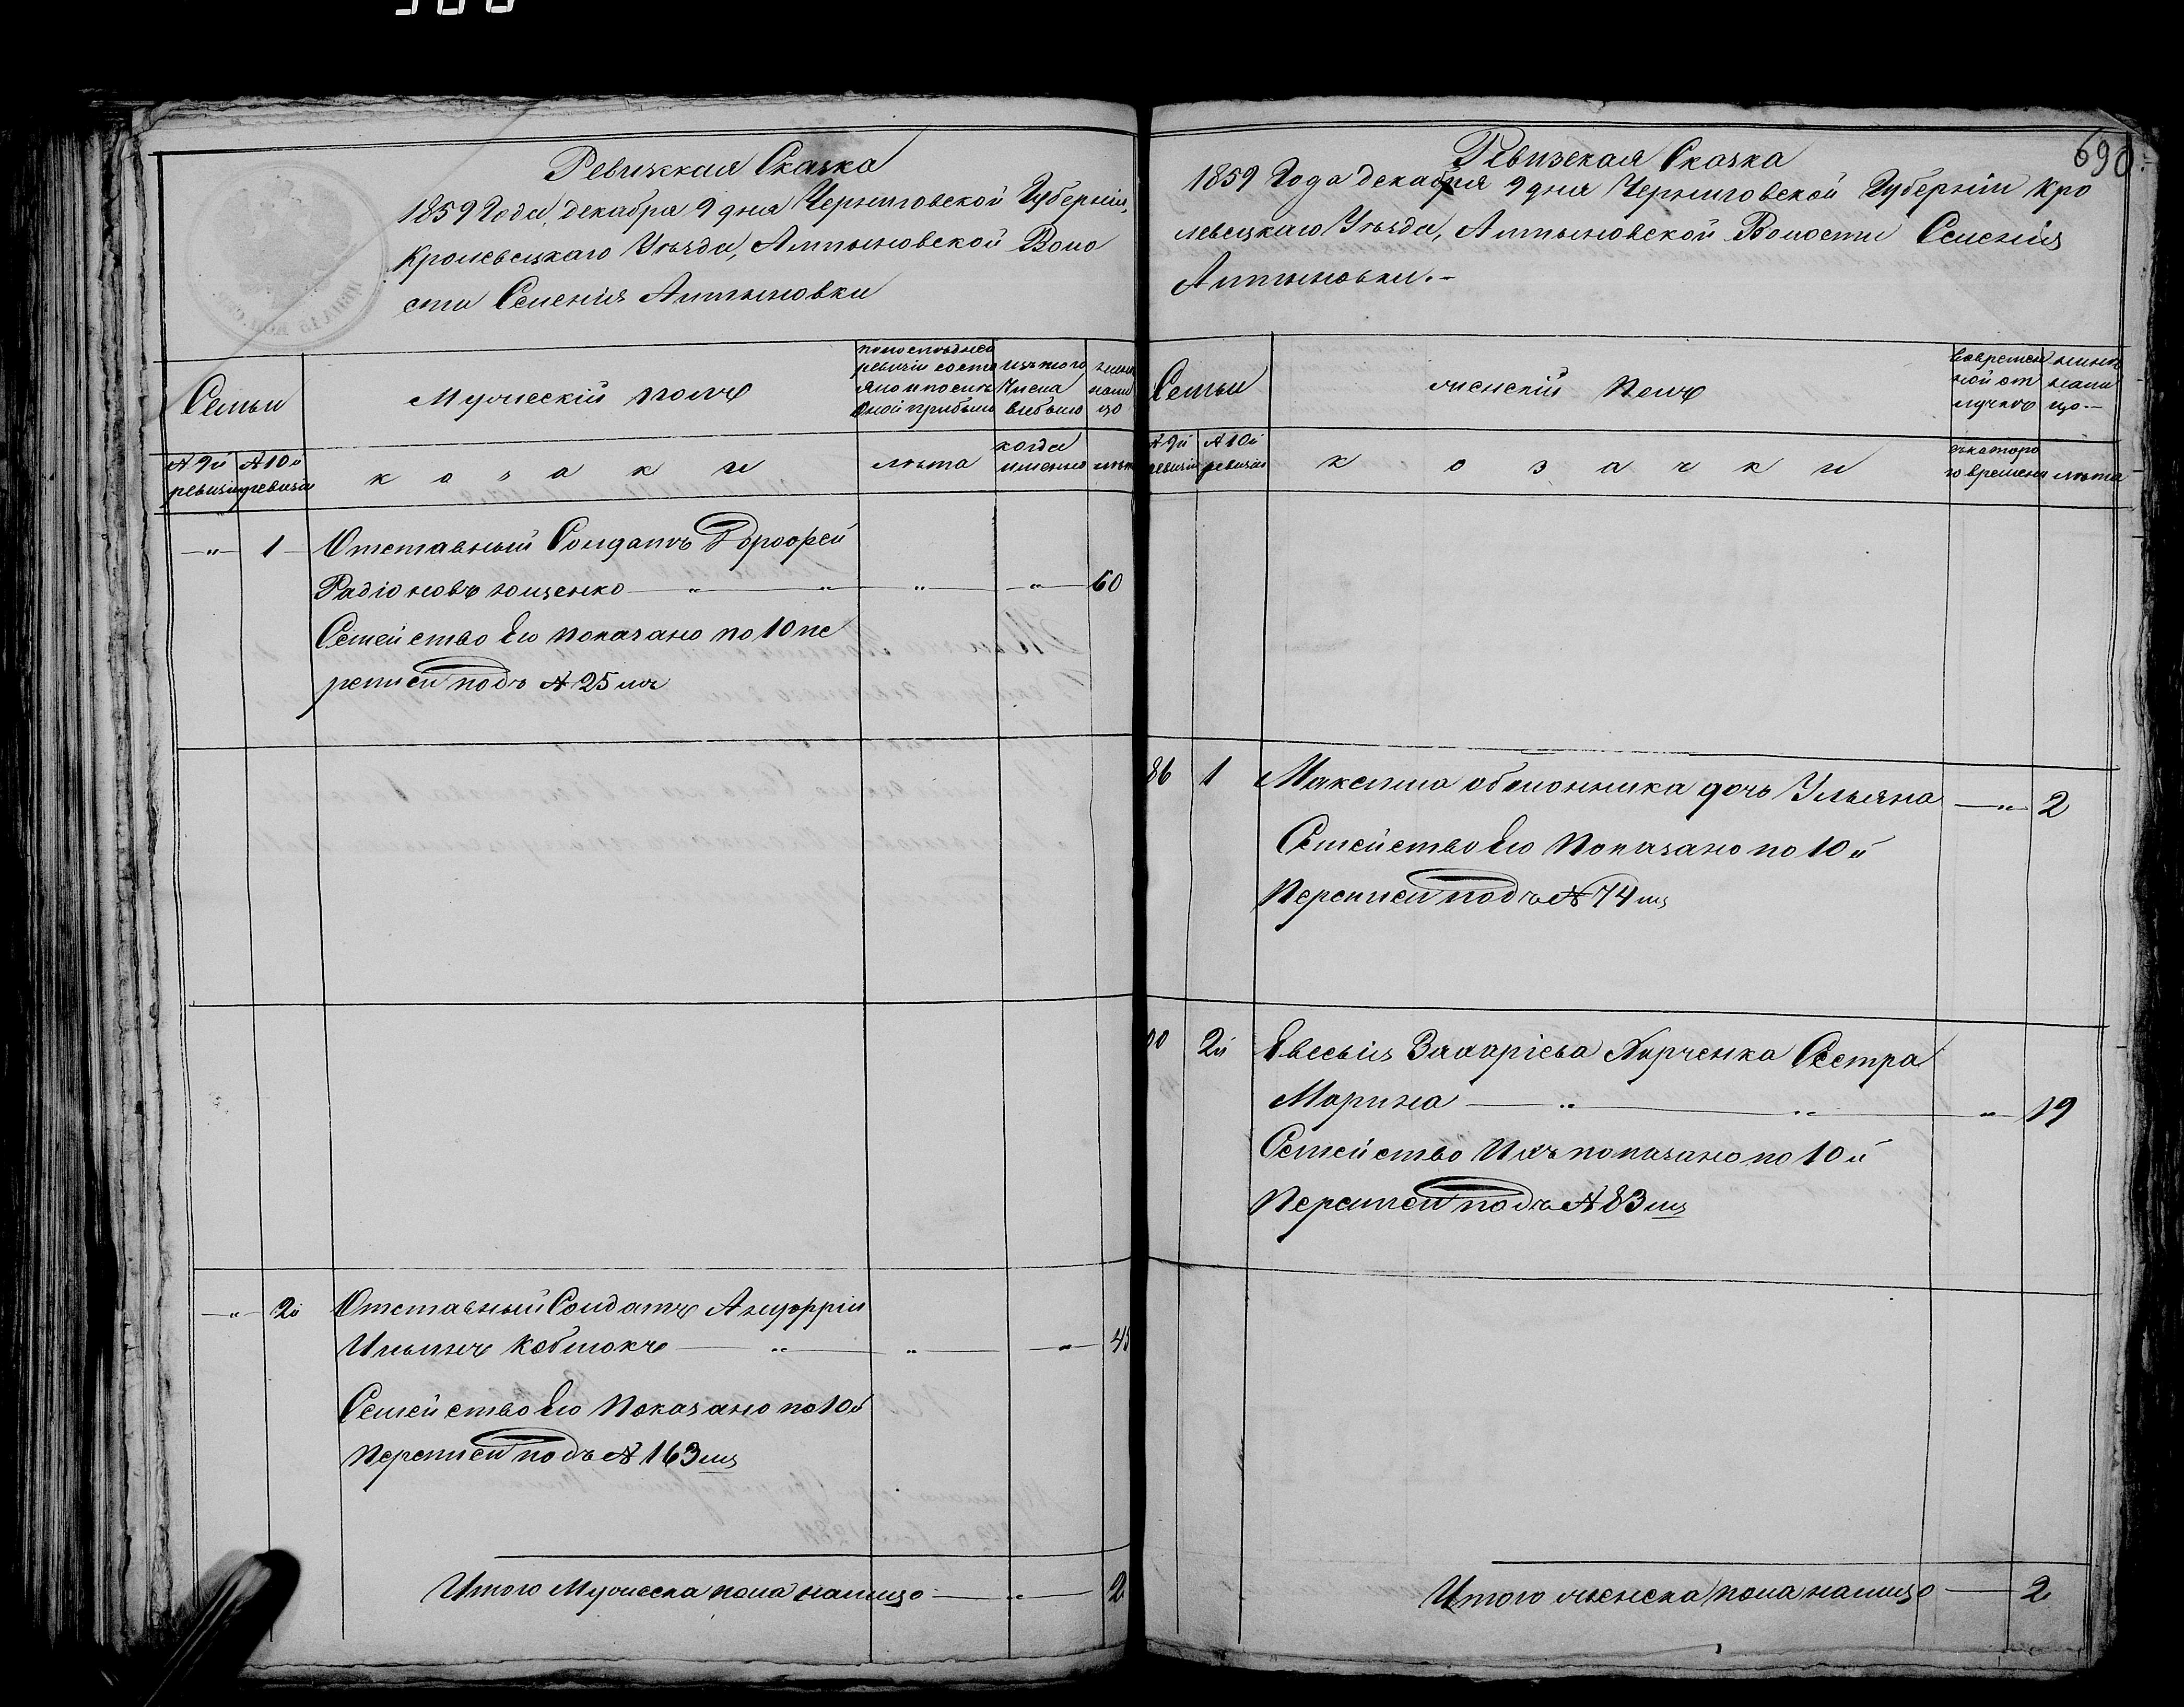 Ревизская Сказка
1859 Года декабря 9 дня Черниговской Губерніи,
Кролевецкаго Уѣзда, Алтыновской Воло
сти Селенія Алтыновки
Семьи
Мужескій полъ
по последней
ревизіи состо
яло и после
оной прибыло
изъ того
числа
выбыло
ныне
нали
цо
№ 9й
ревизіи
№ 10й
ревизіи
к а з а к и
лѣта
когда
именно
лѣта
— „ — 1 — Отставный Солдатъ Дорофей
Радіоновъ Ющенко — „ — „ — „ — „ — 60
Семейство Его показано по 10 пе
реписи подъ № 25 мъ
— „ — 2й Отставный Солдатъ Ануфрій
Ильинъ Кобтокъ — „ — „ — „ — 45
Семейство Его Показано по 10й
Переписи подъ № 163 мъ
Итого Мужеска пола налицо — „ — 2
690
Ревизская Сказка
1859 Года декабря 9 дня Черниговской Губерніи Кро
левецкаго Уѣзда, Алтыновской Волости Селенія
Алтыновки. –
Семьи
женскій Полъ
во времен
ной от
лучкѣ
ныне
нали
цо. —
№ 9й
ревизіи
№ 10й
ревизіи
к о з а ч к и
съ которо
го времени
лѣта
86 1 Максима облонника дочь Ульяна — „ — 2
Семейство Его Показано по 10й
Переписи подъ № 74 мъ
00 2й Евсевія Захаріева Харченка Сестра
Марина — „ — „ — „ — 19
Семейство Ихъ показано по 10й
Переписи подъ № 83 мъ
Итого женска пола налицо — 2